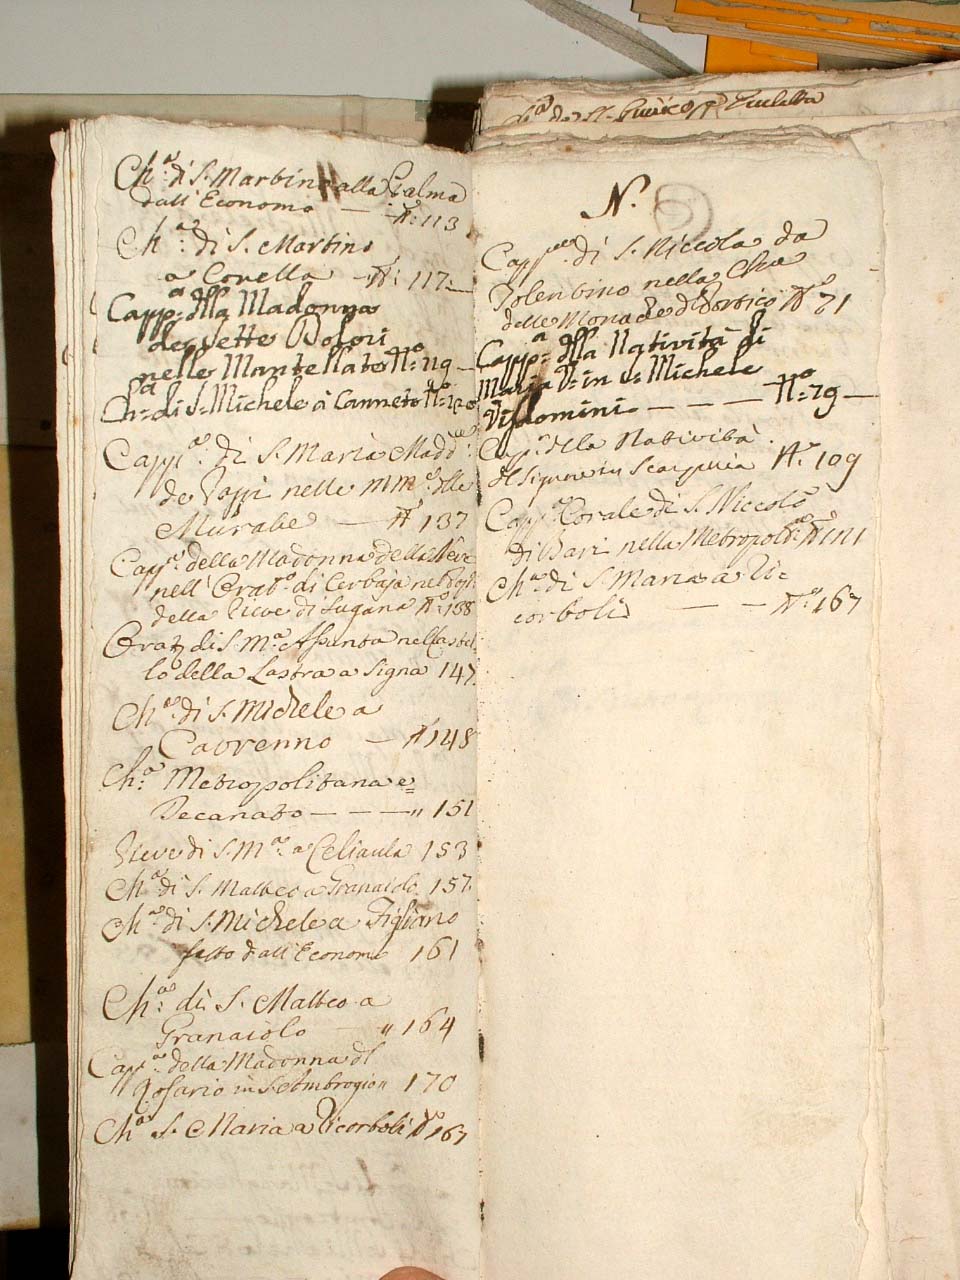 Ch.ª di S. Martino alla Palma
dall'Economo — N.º 113
Ch.ª di S. Martino
a Corella — N.º 117
Capp.ª d'lla Madonna
de sette Dolori
nelle Mantellate N.º 119
Ch.ª di S. Michele a Canneto N.º 120
Capp.ª di S. Maria Madd.
de Pazzi nelle mm.º d'lle
Murate — N.º 137
Capp.ª della Madonna della Neve
nell'Orat.º di Cerbaja nel Pop.
della Pieve di Lugana N.º 138
Orat. di S. M.ª Assunta nel Castel-
lo della Lastra a Signa 147
Ch.ª di S. Michele a
Cavrenno — N.º 148
Ch.ª Metropolitana e
Decanato — — — " 151
Pieve di S. M.ª a Celiaula 153
Ch.ª di S. Matteo a Granaiolo 157
Ch.ª di S. Michele a Figliano
fatto dall'Economo 161
Ch.ª di S. Matteo a
Granaiolo " 164
Capp.ª della Madonna d'l
Rosario in S. Ambrogio 170
Ch.ª S. Maria a Ricorboli N.º 167
N.
Capp.ª di S. Niccola da
Tolentino nella Ch.ª
delle Monache di N.º 21
Capp.ª d'lla Natività di
Maria V. in S. Michele
Visdomini — — — N.º 29
Capp.ª d'lla Natività
d'l Signore in Scarperia N.º 109
Capp.ª Corale di S. Niccolò
di Bari nella Metropol.ª N.º 121
Ch.ª di S. Maria a Ri=
corboli — — N.º 167